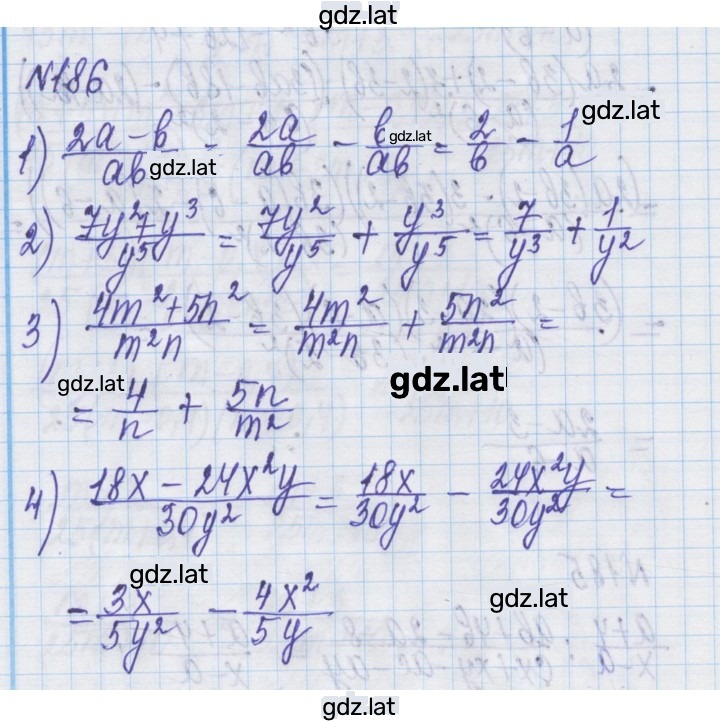 gdz.lat
№186
gdz.lat
1) (2a - b)/(ab) = (2a)/(ab) - b/(ab) = 2/b - 1/a
gdz.lat
gdz.lat
2) (7y²+y³)/(y⁵) = (7y²)/(y⁵) + (y³)/(y⁵) = 7/(y³) + 1/(y²)
3) (4m²+5n²)/(m²n) = (4m²)/(m²n) + (5n²)/(m²n) =
gdz.lat
gdz.lat
= 4/n + (5n)/(m²)
4) (18x - 24x²y)/(30y²) = (18x)/(30y²) - (24x²y)/(30y²) =
gdz.lat
gdz.lat
= (3x)/(5y²) - (4x²)/(5y)
gdz.lat